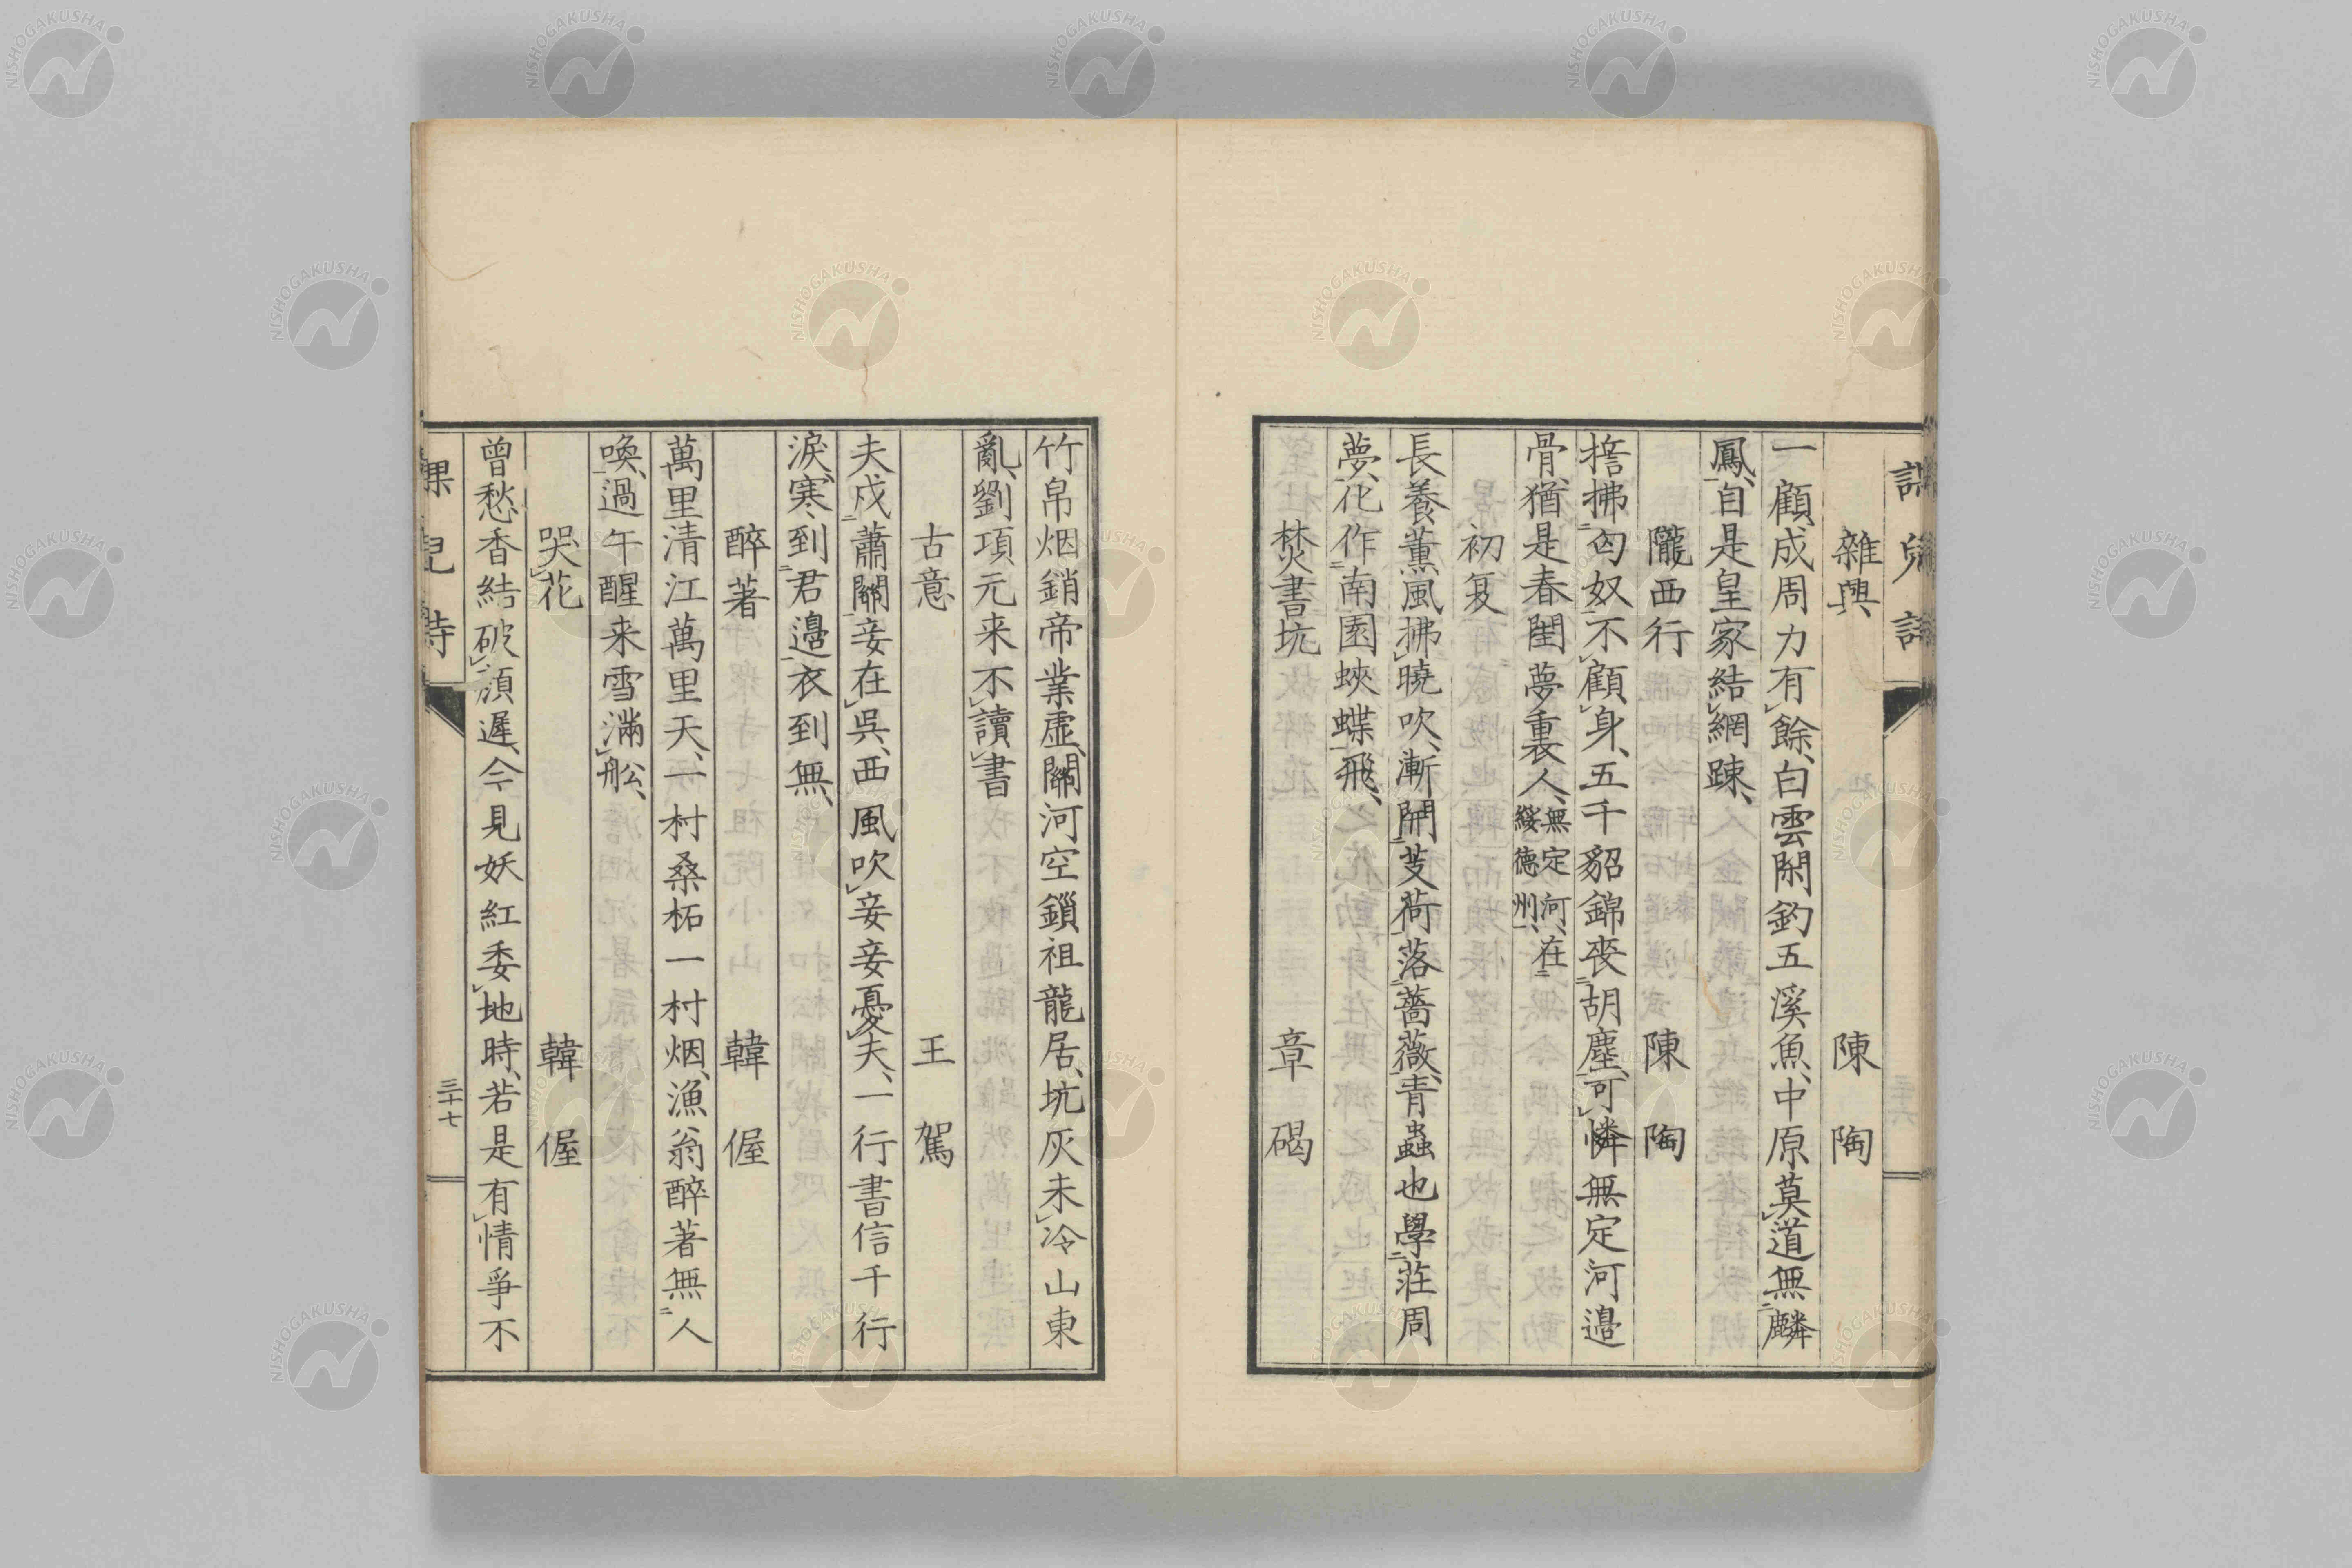 課兒詩
雜興 陳陶
一顧成周力有餘、白雲閑釣五溪魚、中原莫道無麟
鳳、自是皇家結網踈、
隴西行 陳陶
掃拂匈奴不顧身、五千貂錦喪胡塵、可憐無定河邉
骨、猶是春閨夢裏人、無定河、在綏德州、
初夏
長養薰風拂曉吹、漸開芰荷落薔薇、青蟲也學莊周
夢、化作南園蛺蝶飛、
焚書坑 章碣
竹帛烟銷帝業虛、關河空鎖祖龍居、坑灰未冷山東
亂、劉項元来不讀書
古意 王駕
夫戍蕭關妾在吳、西風吹妾妾憂夫、一行書信千行
淚、寒到君邉衣到無、
醉著 韓偓
萬里清江萬里天、一村桑柘一村烟、漁翁醉著無人
喚、過午醒来雪滿舩、
哭花 韓偓
曾愁香結破顔遲、今見妖紅委地時、若是有情爭不
課兒詩 三十七
NISHOGAKUSHA